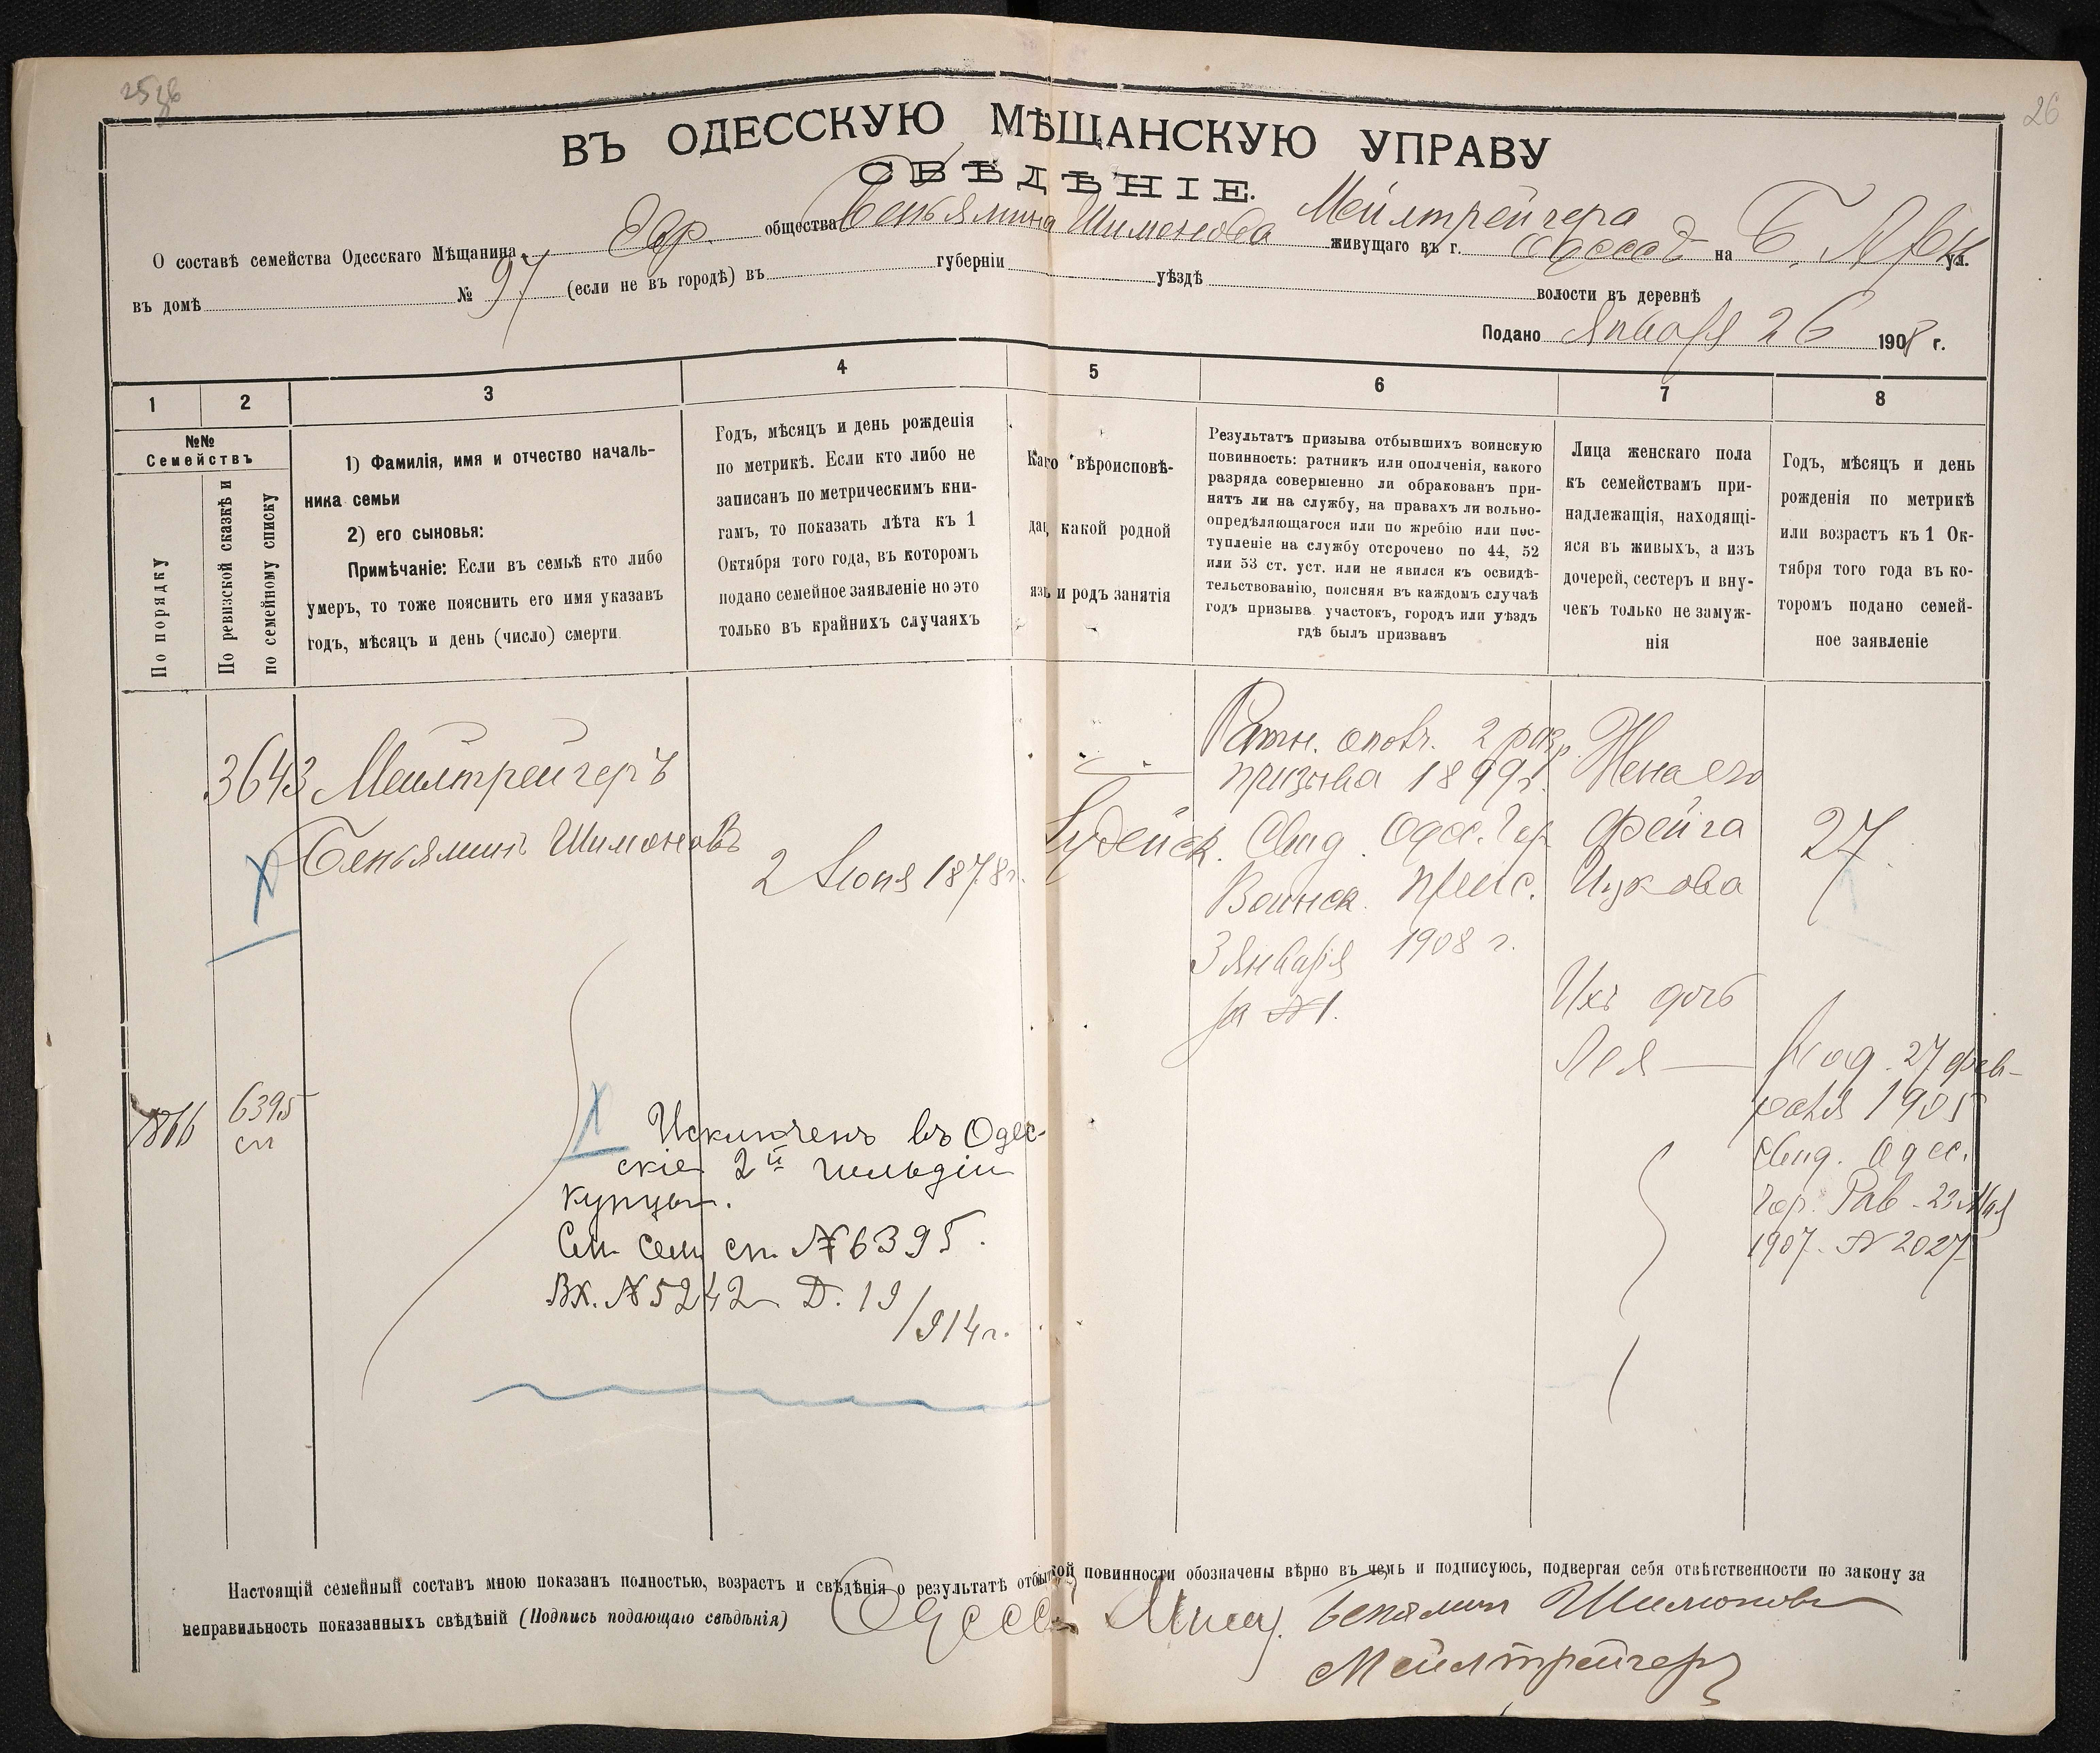 26
ВЪ ОДЕССКУЮ МѢЩАНСКУЮ УПРАВУ
СВѢДѢНІЕ.
О составѣ семейства Одесскаго Мѣщанина Евр. общества Беньямина Шимонова Мейлтрейгера живущаго въ г. Одессѣ на Б. Арн ул.
въ домѣ № 97 (если не въ городѣ) въ губерніи уѣздѣ волости въ деревнѣ
Подано Января 26 1908 г.
1 2 3 4 5 6 7 8
№№
Семействъ
По порядку
По ревизской сказкѣ и
по семейному списку
1) Фамилія, имя и отчество началь-
ника семьи
2) его сыновья:
Примѣчаніе: Если въ семьѣ кто либо
умеръ, то тоже пояснить его имя указавъ
годъ, мѣсяцъ и день (число) смерти
Годъ, мѣсяцъ и день рожденія
по метрикѣ. Если кто либо не
записанъ по метрическимъ кни-
гамъ, то показать лѣта къ 1
Октября того года, въ которомъ
подано семейное заявленіе но это
только въ крайнихъ случаяхъ
Каго вѣроисповѣ-
да, какой родной
язь и родъ занятія
Результатъ призыва отбывшихъ воинскую
повинность: ратникъ или ополченія, какого
разряда совершенно ли обракованъ при-
нятъ ли на службу, на правахъ ли вольно-
опредѣляющагося или по жребію или пос-
тупленіе на службу отсрочено по 44, 52
или 53 ст. уст. или не явился къ освидѣ-
тельствованію, поясняя въ каждомъ случаѣ
годъ призыва участокъ, городъ или уѣздъ
гдѣ былъ призванъ
Лица женскаго пола
къ семействамъ при-
надлежащія, находящі-
яся въ живыхъ, а изъ
дочерей, сестеръ и вну-
чекъ только не замуж-
нія
Годъ, мѣсяцъ и день
рожденія по метрикѣ
или возрастъ къ 1 Ок-
тября того года въ ко-
торомъ подано семей-
ное заявленіе
3643 Мейлтрейгеръ
Беньяминъ Шимоновъ
2 Іюня 1878 г.
Іудейск.
Ратн. ополч. 2 разр.
призыва 1899 г.
Свид. Одес. Гор.
Воинск. Прис.
3 Января 1908 г.
за № 1.
Жена его
Фейга
Ицкова
27
Ихъ дочь
Лея
Род. 27 фев-
раля 1905
Свид. Одес.
Гор. Рав. 23 Мая
1907. № 2027
1866
6395
сп
Исключенъ въ Одес-
скіе 2й гильдіи
купцы.
См. сем. сп. № 6395.
Вх. № 5242 Д. 19/914 г.
Настоящій семейный составъ мною показанъ полностью, возрастъ и свѣдѣнія о результатѣ отбытой повинности обозначены вѣрно въ чемъ и подписуюсь, подвергая себя отвѣтственности по закону за
неправильность показанныхъ свѣдѣній (Подпись подающаго свѣдѣнія) Одесск Мѣщ. Беньямин Шимонов
Мейлтрейгеръ